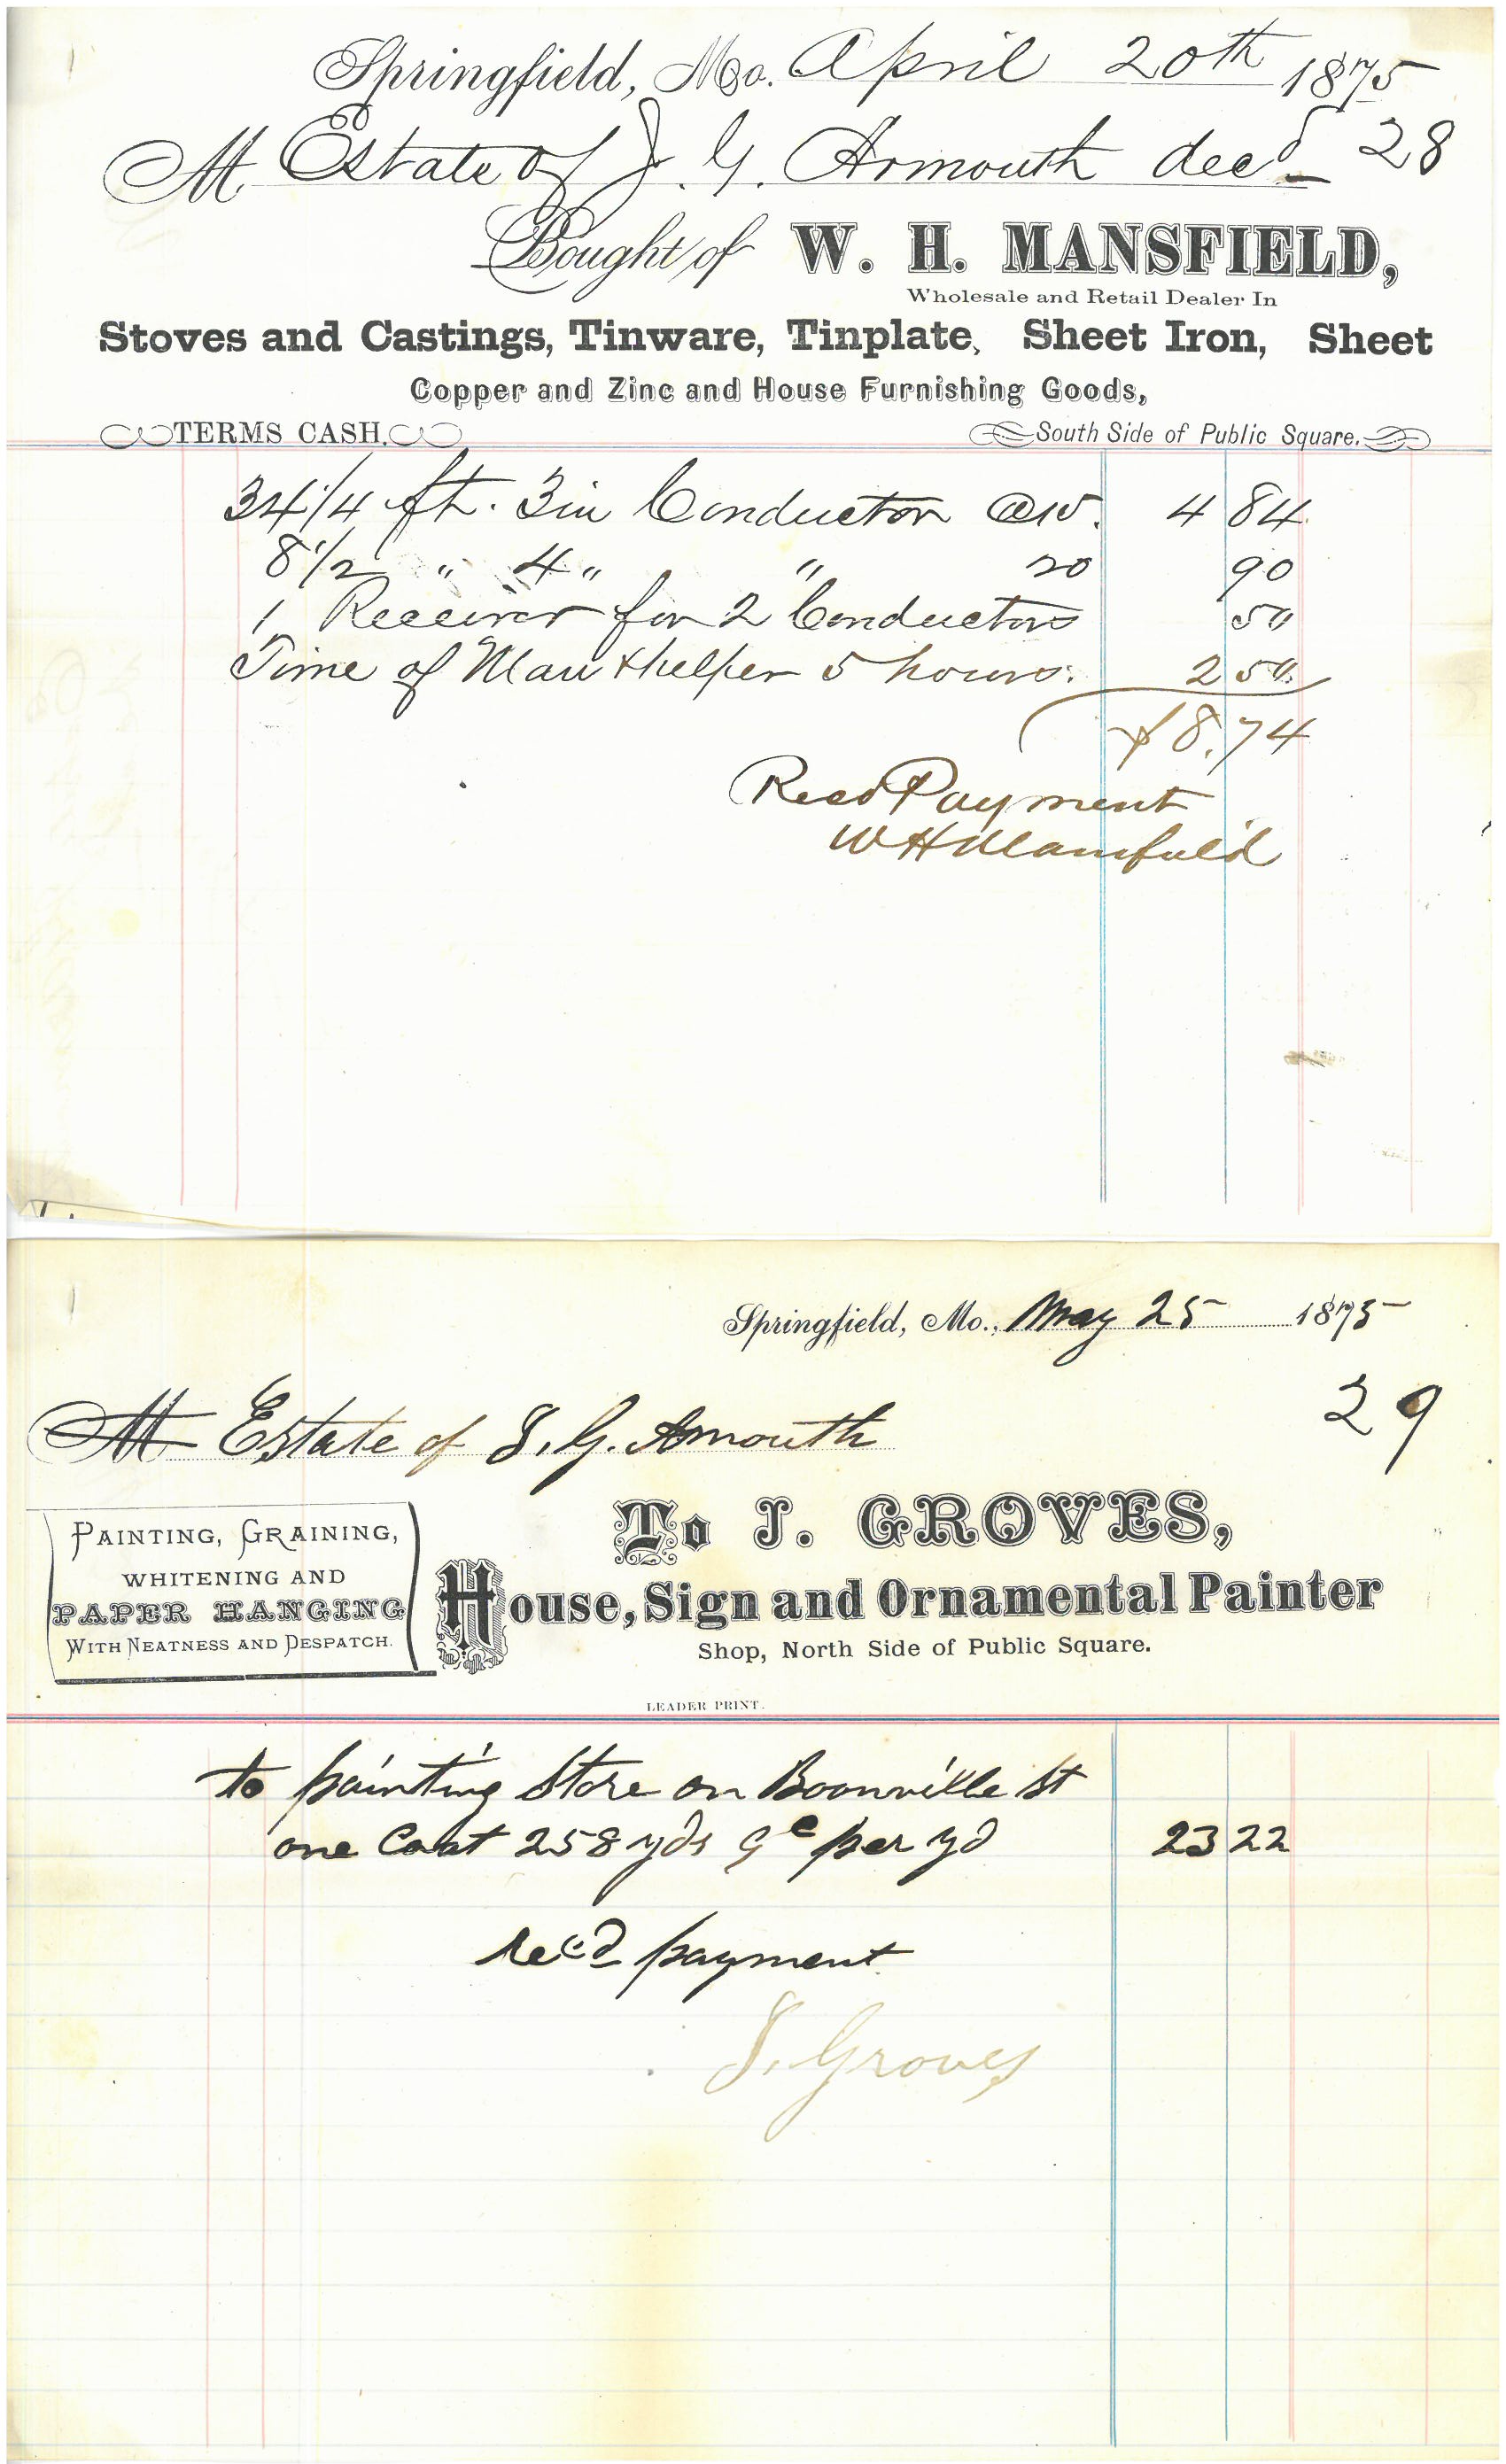 Springfield, Mo. April 20th 1875
M Estate of J. G. Armouth decd 28
Bought of W. H. MANSFIELD,
Wholesale and Retail Dealer In
Stoves and Castings, Tinware, Tinplate, Sheet Iron, Sheet
Copper and Zinc and House Furnishing Goods,
TERMS CASH. South Side of Public Square.
34 1/4 ft. 3 in Conductor @ 4 84
8 1/2 " 4 " " 20 90
1 Receiver for 2 Conductors 50
Time of Man & helper 5 hours. 2 50
$8.74
Recd Payment
W H Mansfield
Springfield, Mo., May 25 1875
29
M Estate of J. G. Amouth
PAINTING, GRAINING,
WHITENING AND
PAPER HANGING
WITH NEATNESS AND DESPATCH.
To J. GROVES,
House, Sign and Ornamental Painter
Shop, North Side of Public Square.
LEADER PRINT.
to painting Store on Boonville St
one Coat 258 yds 9c per yd 23 22
recd payment
J. Groves